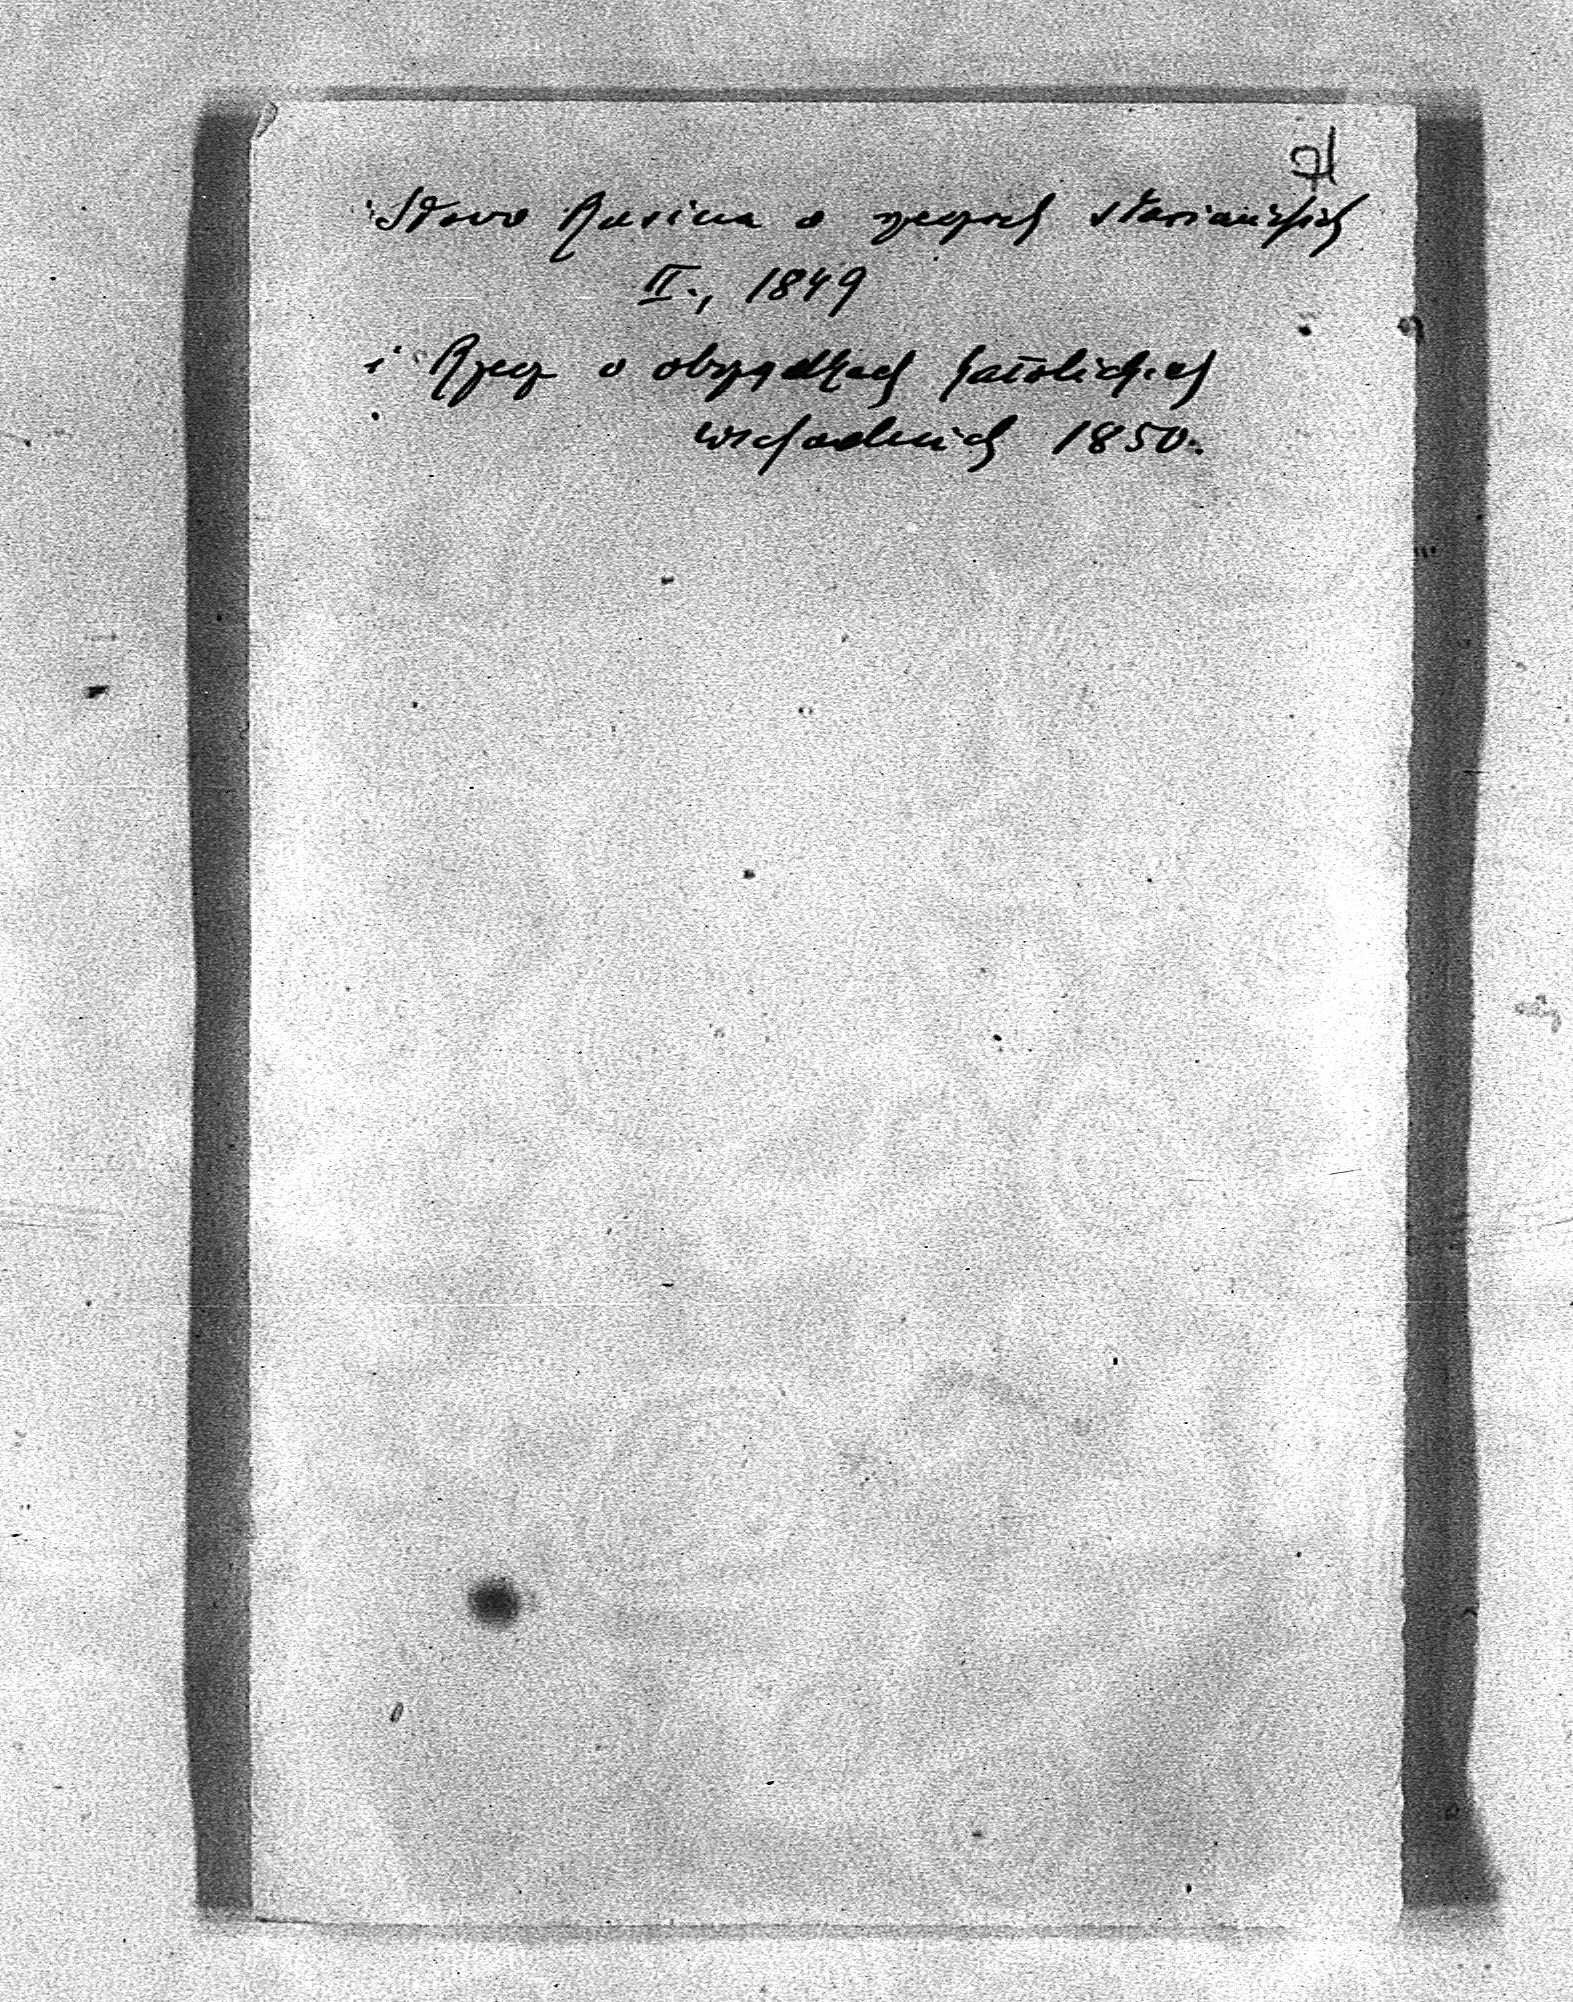 Słowo Rusina o rzeczach słowiańskich
II., 1849
i Rzecz o obrządkach katolickich
wschodnich 1850.